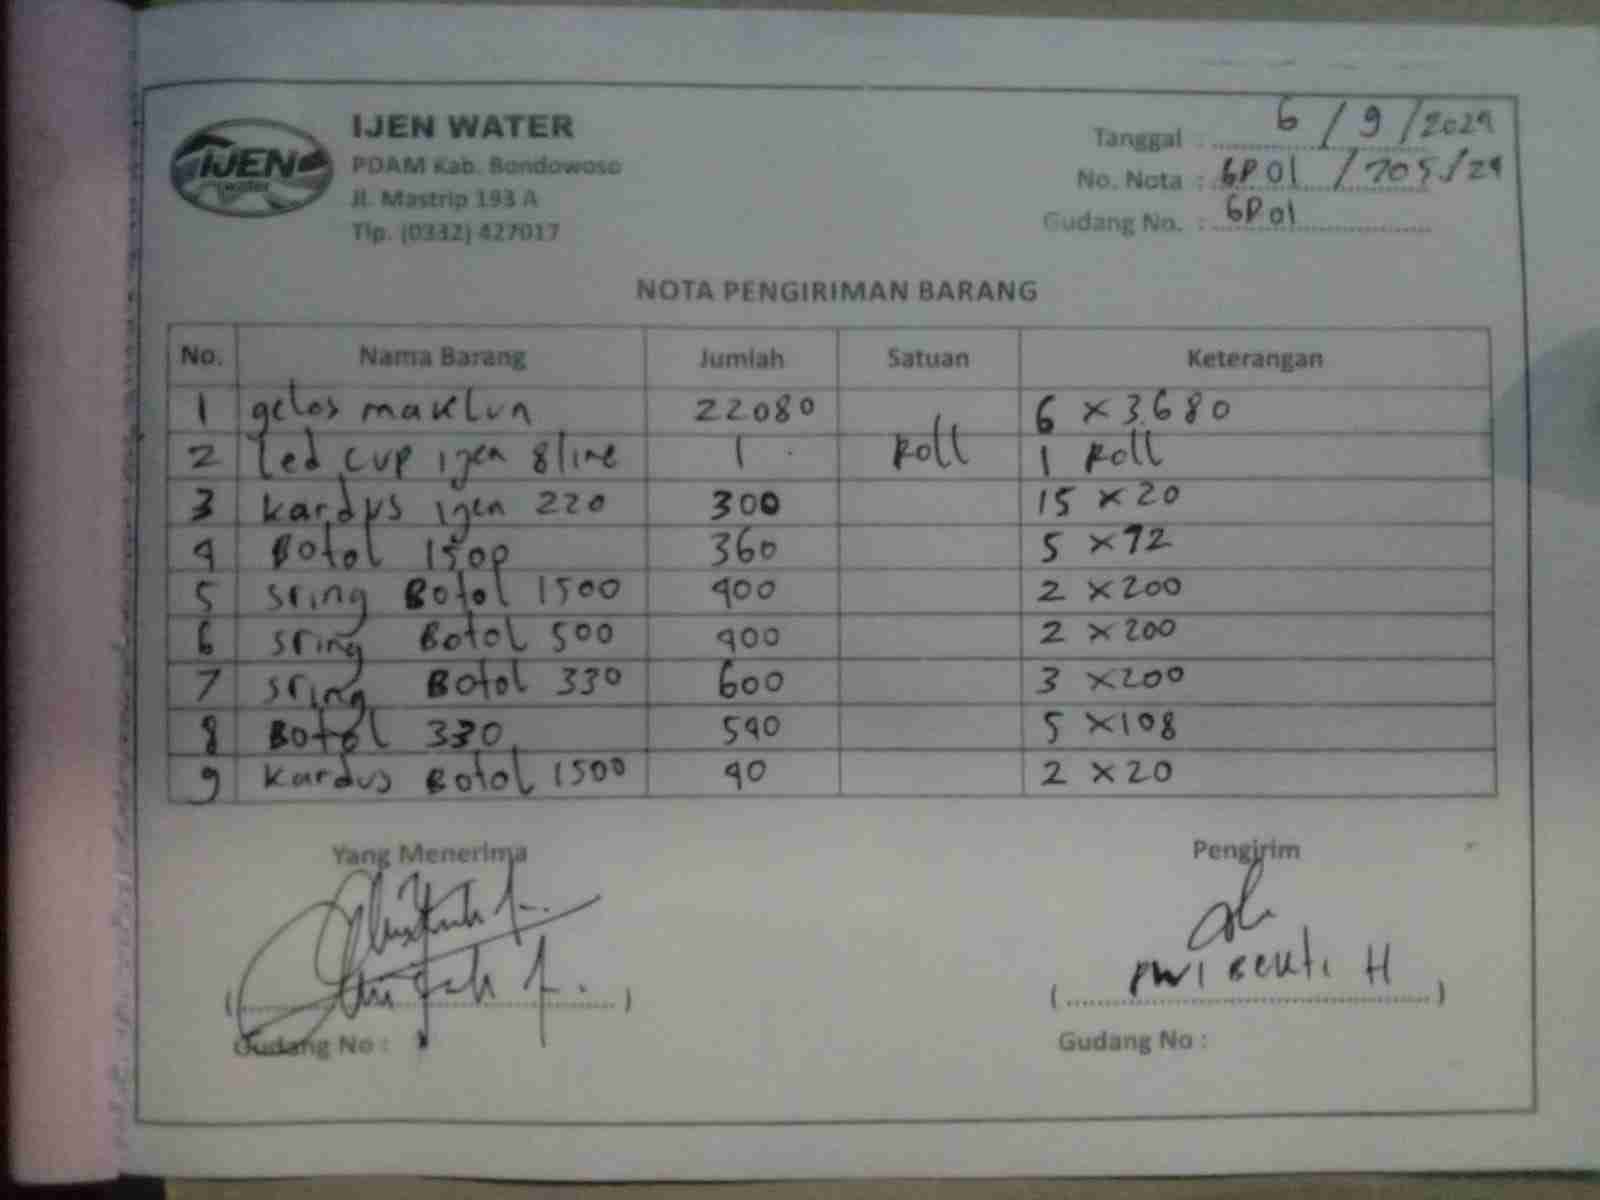 IJEN water
IJEN WATER
PDAM Kab. Bondowoso
Jl. Mastrip 193 A
Tlp. (0332) 427017
Tanggal : 6 / 9 / 2024
No. Nota : GD 01 / 705 / 24
Gudang No. : GD 01
NOTA PENGIRIMAN BARANG
No. Nama Barang Jumlah Satuan Keterangan
1 gelas maklun 22080 6 x 3.680
2 led cup ijen 8 line 1 Roll 1 Roll
3 kardus ijen 220 300 15 x 20
4 Botol 1500 360 5 x 72
5 sring Botol 1500 400 2 x 200
6 sring Botol 500 400 2 x 200
7 sring Botol 330 600 3 x 200
8 Botol 330 540 5 x 108
9 kardus Botol 1500 40 2 x 20
Yang Menerima Pengirim
(....................) (DWI BEKTI H)
Gudang No : Gudang No :